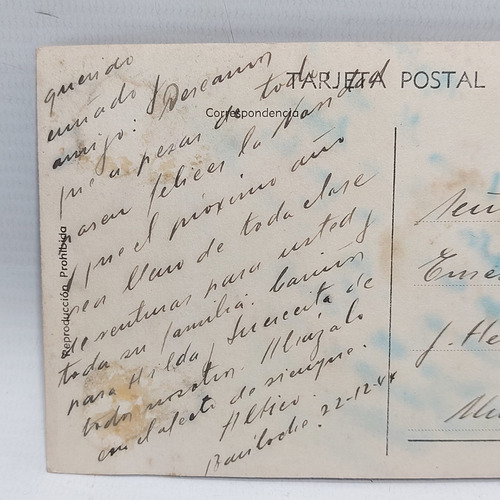 TARJETA POSTAL
Correspondencia
Reproducción Prohibida
querido
cuñado y
amigo: Deseamos
que a pesar de todo
pasen felices la Navidad
y que el próximo año
sea lleno de toda clase
de venturas para usted y
toda su familia. Cariños
para Hilda y
todos nosotros.
en el afecto de siempre.
Bariloche. 22-12-4
J. He